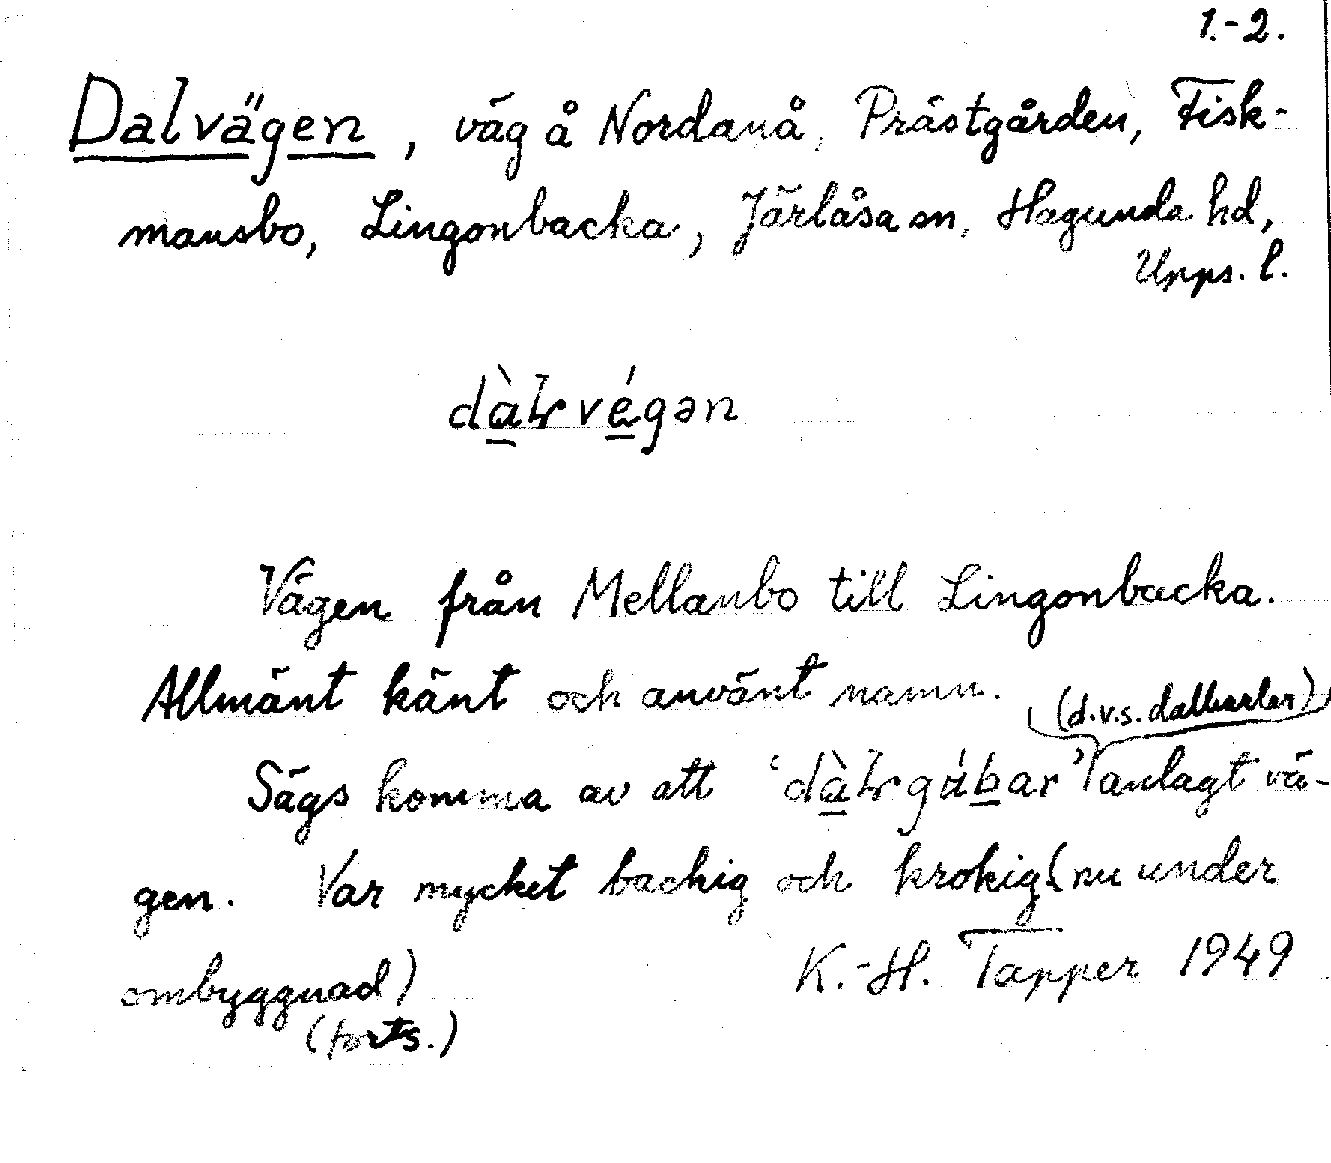 1.-2.
Dalvägen, väg å Nordanå, Prästgården, Fisk-
mansbo, Lingonbacka, Järlåsa sn, Hagunda hd,
Upps. l.
dàɫvégən
Vägen från Mellanbo till Lingonbacka.
Allmänt känt och använt namn.
(d.v.s. dalkarlar)
Sägs komma av att 'dàɫgúbar' anlagt vä-
gen. Var mycket backig och krokig (nu under
ombyggnad) K.-H. Tapper 1949
(forts.)